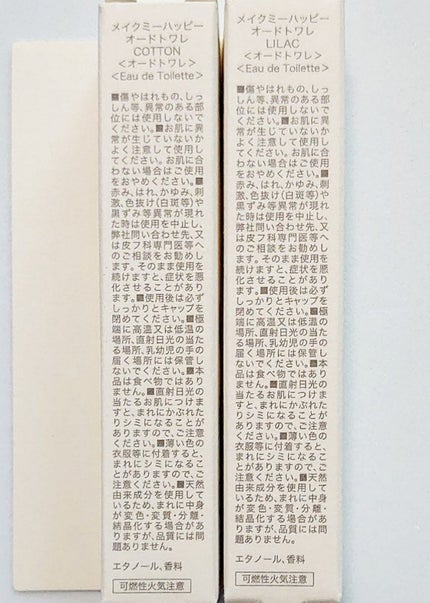 メイクミーハッピー
オードトワレ
COTTON
<オードトワレ>
<Eau de Toilette>
■傷やはれもの、しっ
しん等、異常のある部
位には使用しないで
ください。■お肌に異
常が生じていないか
よく注意して使用し
てください。お肌に合
わない場合はご使用
をおやめください。■
赤み、はれ、かゆみ、刺
激、色抜け(白斑等)や
黒ずみ等異常が現れ
た時は使用を中止し、
弊社問い合わせ先、又
は皮フ科専門医等へ
のご相談をお勧めし
ます。そのまま使用を
続けますと、症状を悪
化させることがあり
ます。■使用後は必ず
しっかりとキャップを
閉めてください。■極
端に高温又は低温の
場所、直射日光の当た
る場所、乳幼児の手の
届く場所には保管し
ないでください。■本
品は食べ物ではあり
ません。■直射日光の
当たるお肌につけま
すと、まれにかぶれた
りシミになることが
ありますので、ご注意
ください。■薄い色の
衣服等に付着すると、
まれにシミになるこ
とがありますので、ご
注意ください。■天然
由来成分を使用して
いるため、まれに中身
が変色・変質・分離・
結晶化する場合があ
りますが、品質には問
題ありません。
エタノール、香料
可燃性火気注意
メイクミーハッピー
オードトワレ
LILAC
<オードトワレ>
<Eau de Toilette>
■傷やはれもの、しっ
しん等、異常のある部
位には使用しないで
ください。■お肌に異
常が生じていないか
よく注意して使用し
てください。お肌に合
わない場合はご使用
をおやめください。■
赤み、はれ、かゆみ、刺
激、色抜け(白斑等)や
黒ずみ等異常が現れ
た時は使用を中止し、
弊社問い合わせ先、又
は皮フ科専門医等へ
のご相談をお勧めし
ます。そのまま使用を
続けますと、症状を悪
化させることがあり
ます。■使用後は必ず
しっかりとキャップを
閉めてください。■極
端に高温又は低温の
場所、直射日光の当た
る場所、乳幼児の手の
届く場所には保管し
ないでください。■本
品は食べ物ではあり
ません。■直射日光の
当たるお肌につけま
すと、まれにかぶれた
りシミになることが
ありますので、ご注意
ください。■薄い色の
衣服等に付着すると、
まれにシミになるこ
とがありますので、ご
注意ください。■天然
由来成分を使用して
いるため、まれに中身
が変色・変質・分離・
結晶化する場合があ
りますが、品質には問
題ありません。
エタノール、香料
可燃性火気注意